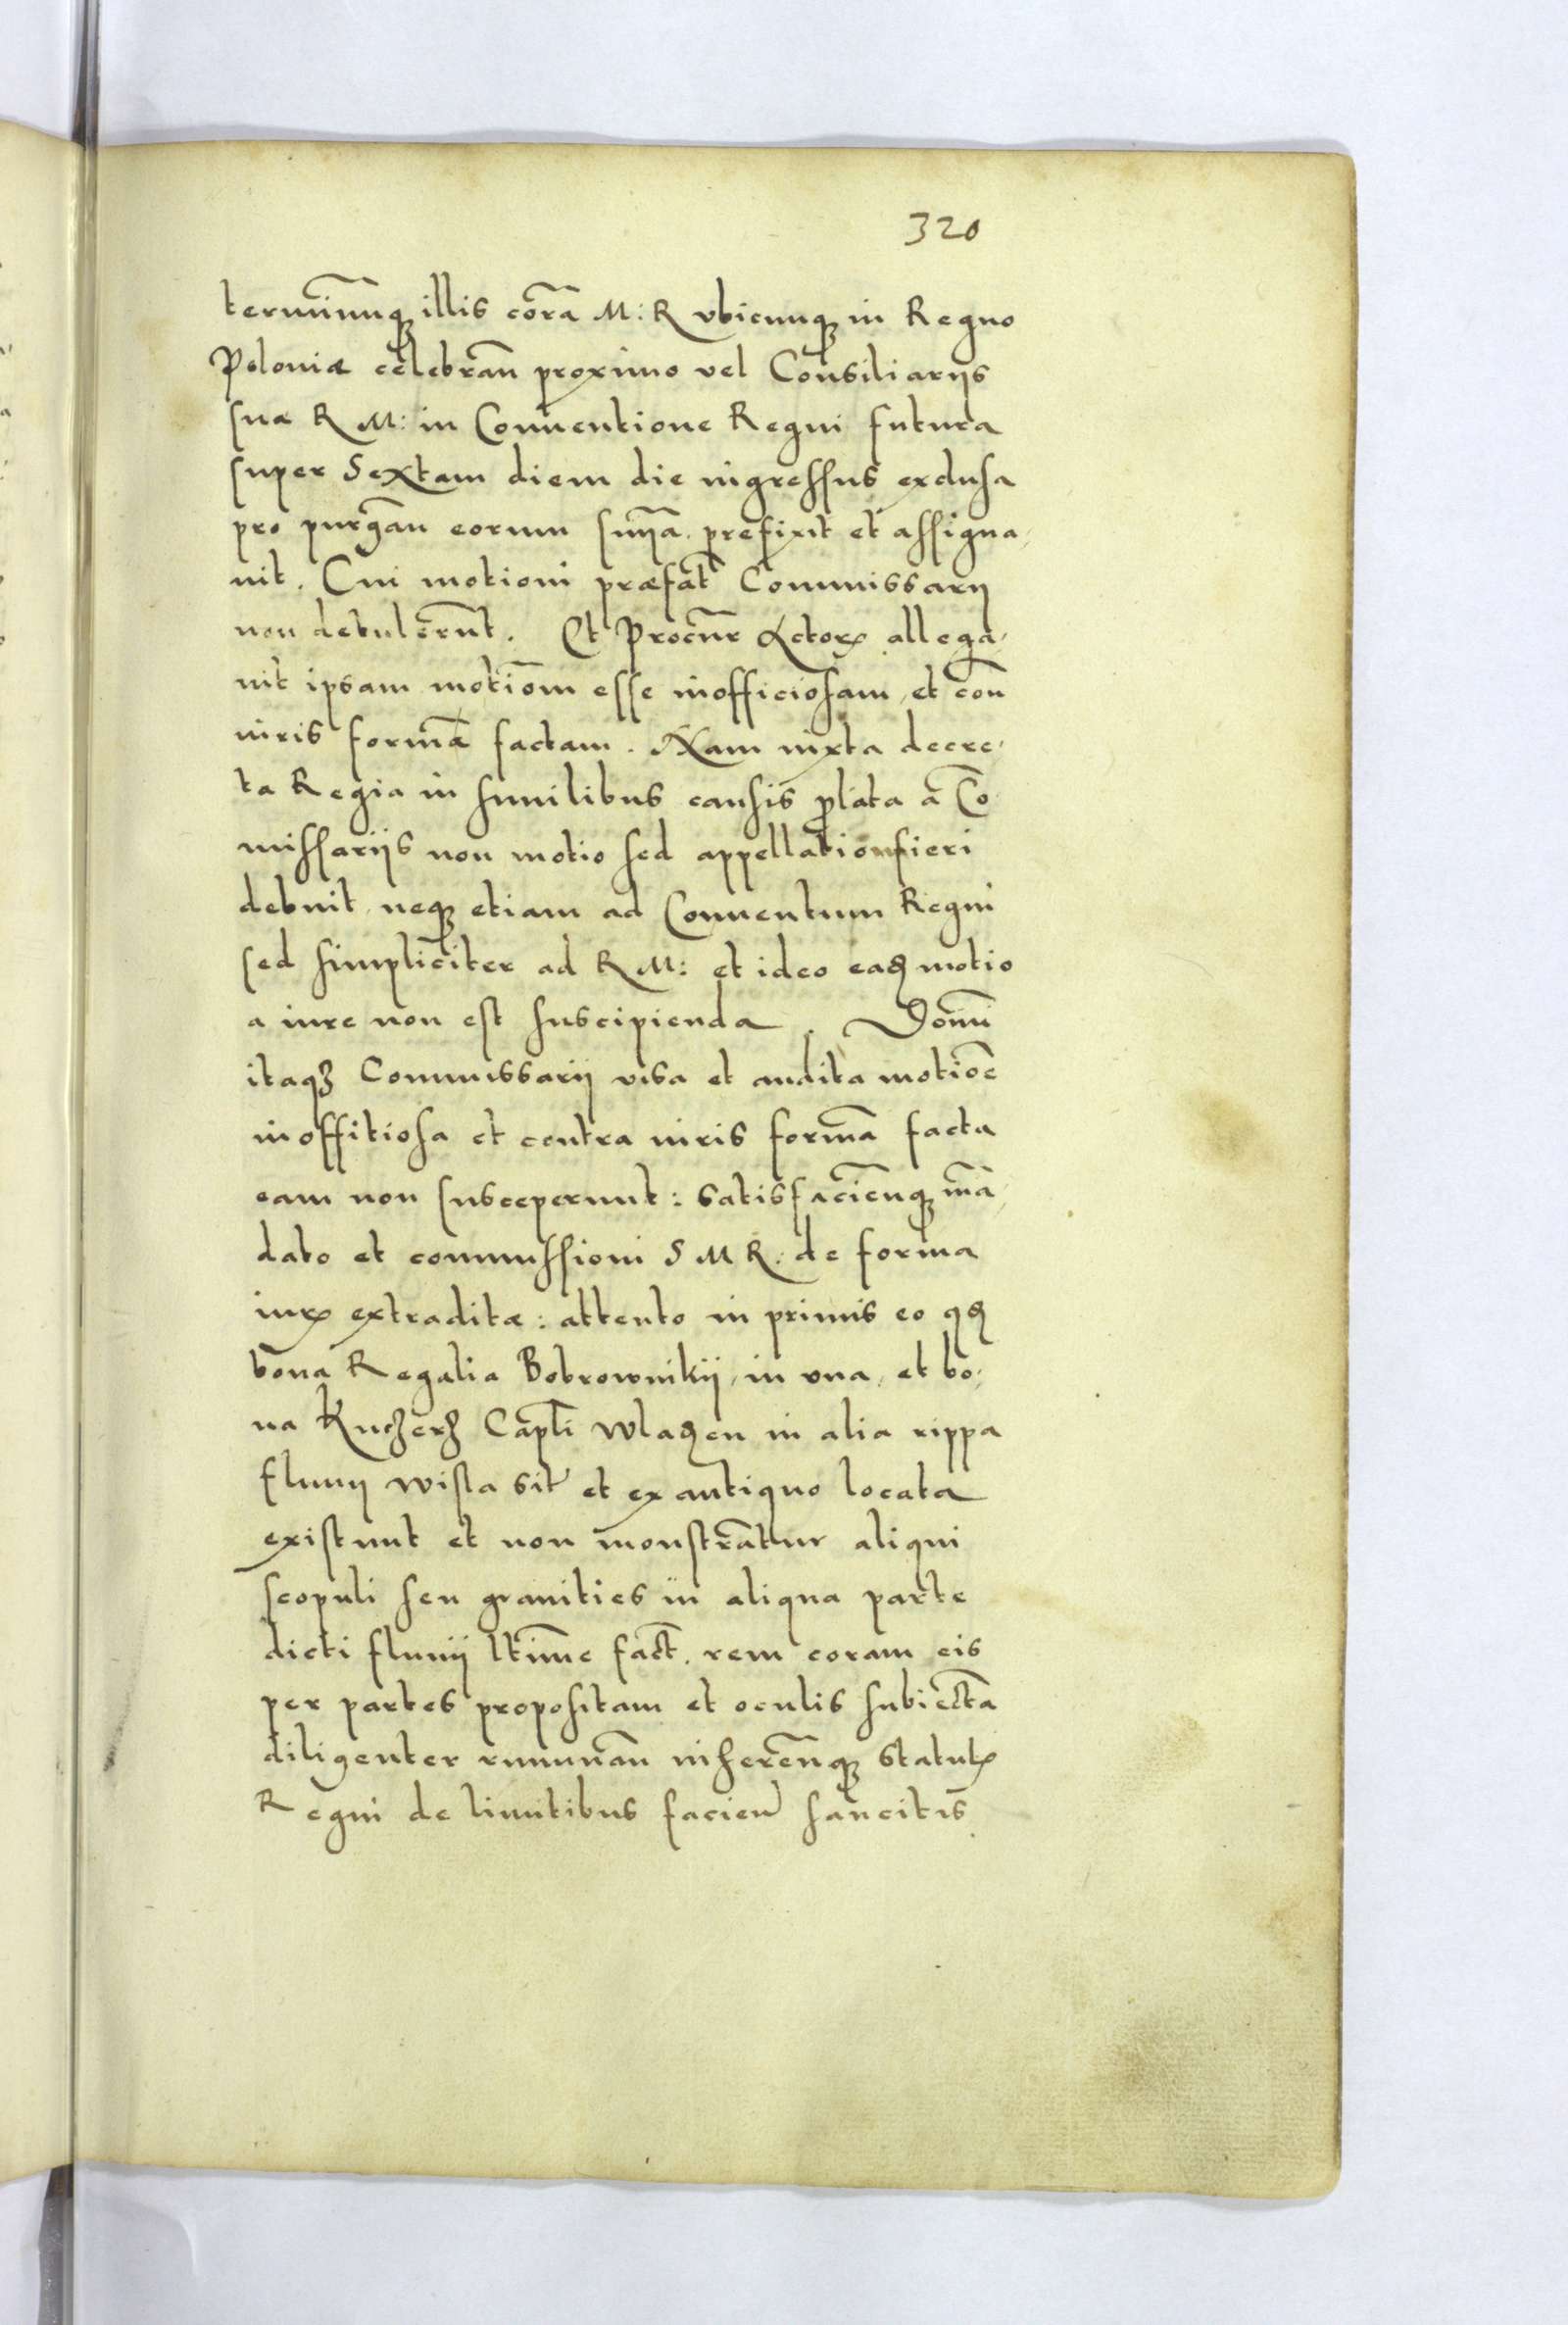 320
terminumq₃ illis corā M: R vbicunq₃ in Regno
Poloniæ celebran̄ proximo vel Consiliariis
suæ R M: in Conuentione Regni futura
super Sextam diem die ingressus exclusa
pro purgan̄ eorum sniā prefixit et assigna,
uit. Cui motioni præfat̄ Commissarii
non detulerūnt. Et Procur̄ Actorꝝ allega,
uit ipsam motiōm esse inofficiosam, et con̄
iuris formā factam. Nam iuxta decre,
ta Regia in similibus causis ꝓlata a Cō
missariis non motio sed appellatio fieri
debuit, neq₃ etiam ad Conuentum Regni
sed simpliciter ad R M: et ideo eaꝗ motio
a iure non est suscipienda. Domi͞
itaq₃ Commissarii visa et audita motiōe
inoffitiosa et contra iuris formā facta
eam non susceperunt: satisfacien̄q₃ mā,
dato et commissioni S M R: de forma
iurꝭ extraditæ: attento in primis eo ꝙ
bona Regalia Bobrowniky, in vna, et bo,
na Kuczerz Capli Wladen in alia rippa
fluuij Wisla sit̄ et ex antiquo locata
existunt et non monstrātur aliqui
scopuli seu granities in aliqua parte
dicti fluuij ltime fact̄. rem coram eis
per partes propositam et oculis subiectā
diligenter ruminan̄ inheren̄q₃ statutꝭ
Regni de limitibus facien̄ sancitis